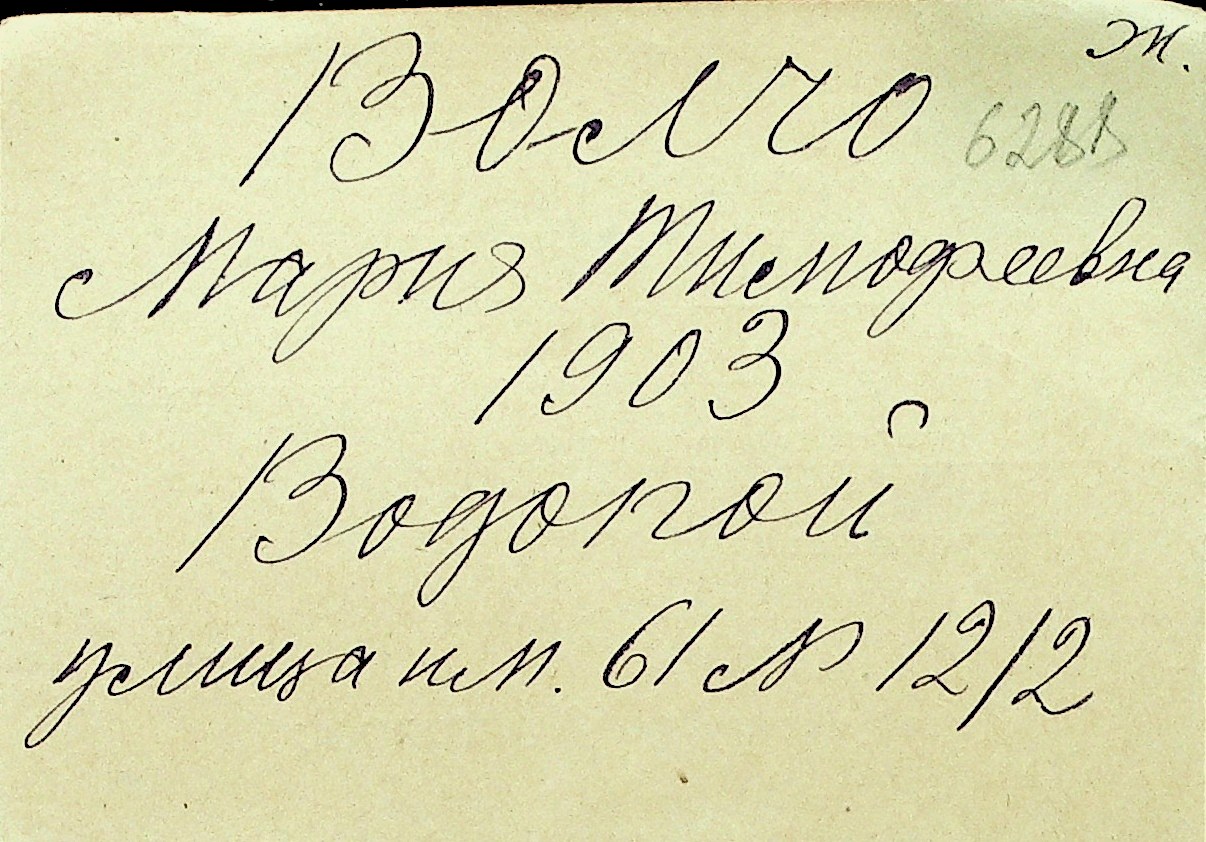 Ж.
Волчо
Мария Тимофеевна
1903
Водопой
улица им. 61 № 12/2